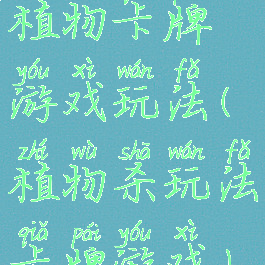 植物卡牌
yóu xì wán fǎ
游戏玩法(
zhí wù shā wán fǎ
植物杀玩法
qiǎ pái yóu xì
卡牌游戏)